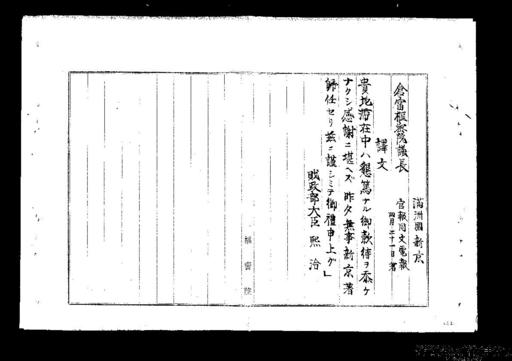 満洲國新京
官報同文電報
四月二十一日着
倉富枢密院議長
譯文
貴地滞在中ハ懇篤ナル御歓待ヲ忝ケ
ナクシ感謝ニ堪ヘズ昨夕無事新京著
歸任セリ茲ニ謹シミテ御禮申上グ」
財政部大臣 熙洽
樞密院